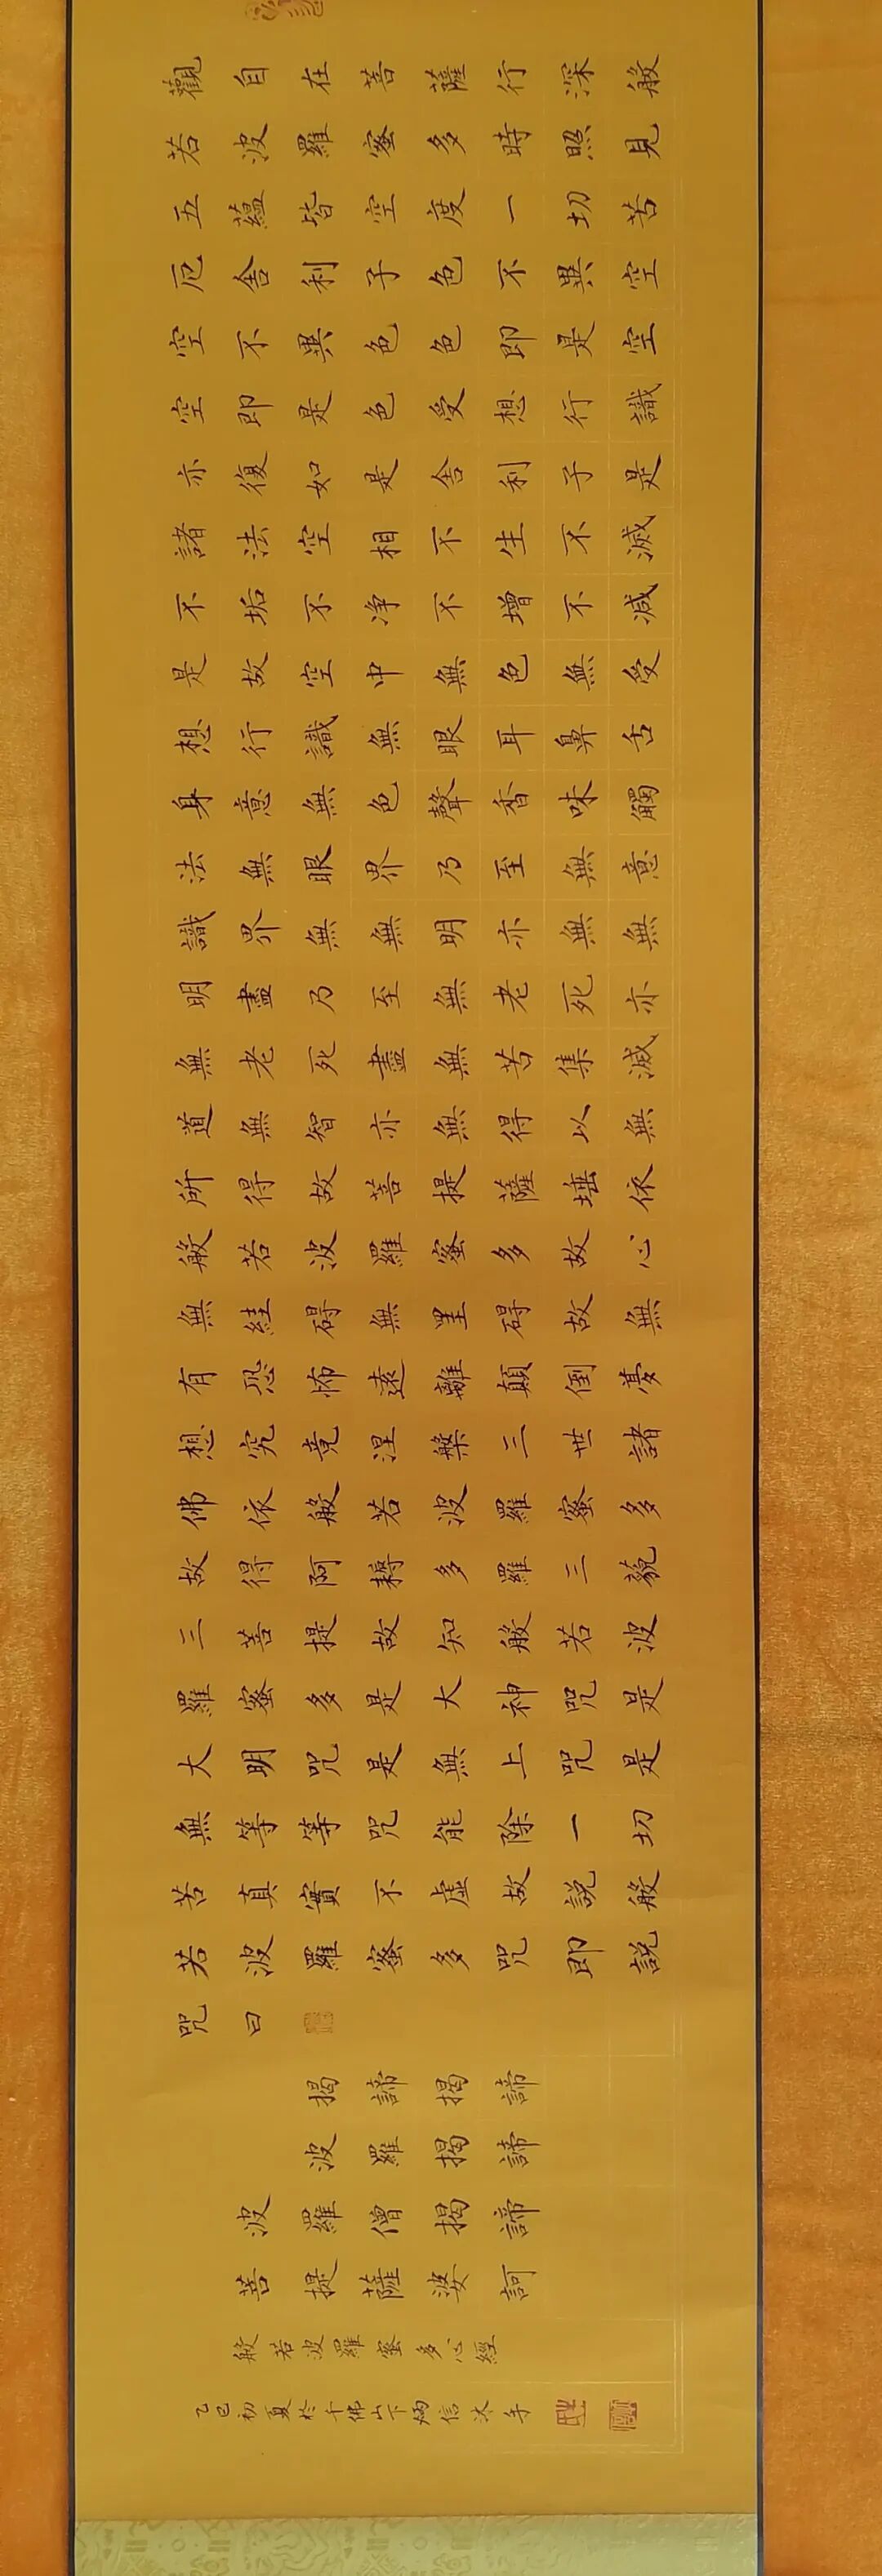 觀自在菩薩行深般
若波羅蜜多時照見
五蘊皆空度一切苦
厄舍利子色不異空
空不異色色即是空
空即是色受想行識
亦復如是舍利子是
諸法空相不生不滅
不垢不净不增不減
是故空中無色無受
想行識無眼耳鼻舌
身意無色聲香味觸
法無眼界乃至無意
識界無無明亦無無
明盡乃至無老死亦
無老死盡無苦集滅
道無智亦無得以無
所得故菩提薩埵依
般若波羅蜜多故心
無絓碍無罣碍故無
有恐怖遠離顛倒夢
想究竟涅槃三世諸
佛依般若波羅蜜多
故得阿耨多羅三藐
三菩提故知般若波
羅蜜多是大神咒是
大明咒是無上咒是
無等等咒能除一切
苦真實不虛故說般
若波羅蜜多咒即說
咒曰
揭諦揭諦
波羅揭諦
波羅僧揭諦
菩提薩婆訶
般若波羅蜜多心經
乙巳初夏於千佛山下炳信沐手